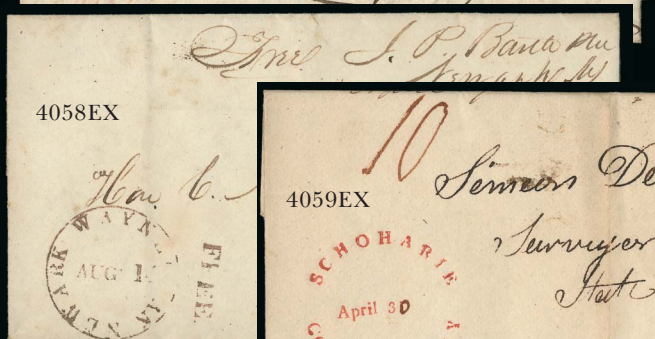 Free J. P.
Newark NY
4058EX
Hon. C.
NEWARK WAYNE
AUG 1
FREE
10
4059EX
Simeon De
Surveyor
State
SCHOHARIE
April 30